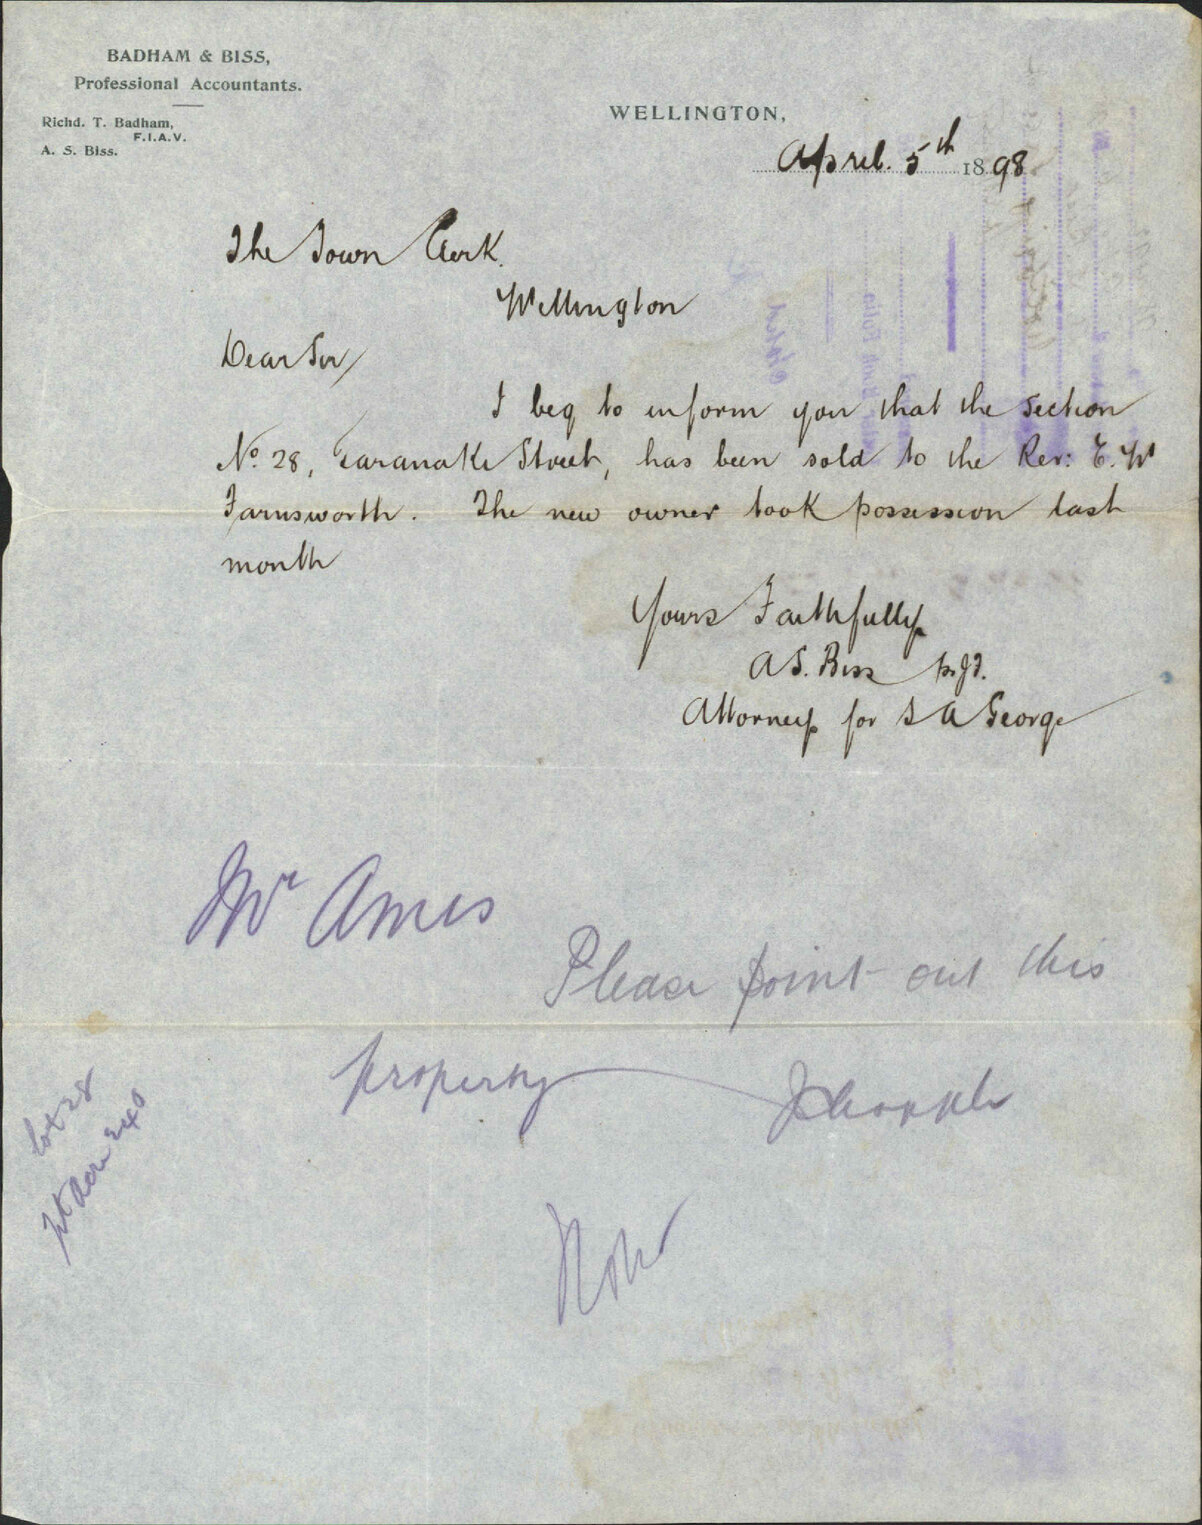 BADHAM & BISS,
Professional Accountants.
Richd. T. Badham,
F.I.A.V.
A. S. Biss.
WELLINGTON,
April. 5th 1898
The Town Clerk.
Wellington
Dear Sir/
I beg to inform you that the section
No. 28, Taranaki Street, has been sold to the Rev: E. W
Farnsworth. The new owner took possession last
month
Yours Faithfully
A S. Biss
Attorney for S A George
Mr Ames
Please point out this
property
Lot 28
Acre 240